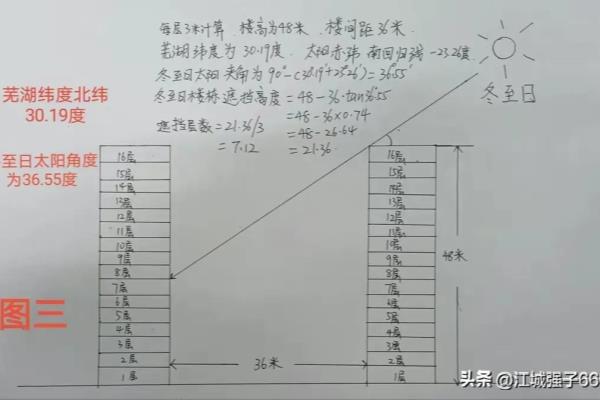 每层3米计算 楼高为48米、楼间距36米.
芜湖纬度为30.19度. 太阳赤纬 南回归线 -23.26度.
冬至日太阳夹角为 90°-(30°19′+23°26′)=36°55′
冬至日楼栋遮挡高度=48-36·tan36°55′
=48-36×0.74
遮挡层数=21.36/3
=48-26.64
=7.12
=21.36
冬至日
芜湖纬度北纬
30.19度
至日太阳角度
为36.55度
图三
16层
15层
14层
13层
12层
11层
10层
9层
8层
7层
6层
5层
4层
3层
2层
1层
36米
16层
15层
14层
13层
12层
11层
10层
9层
8层
7层
6层
5层
4层
3层
2层
1层
48米
头条 @江城强子66